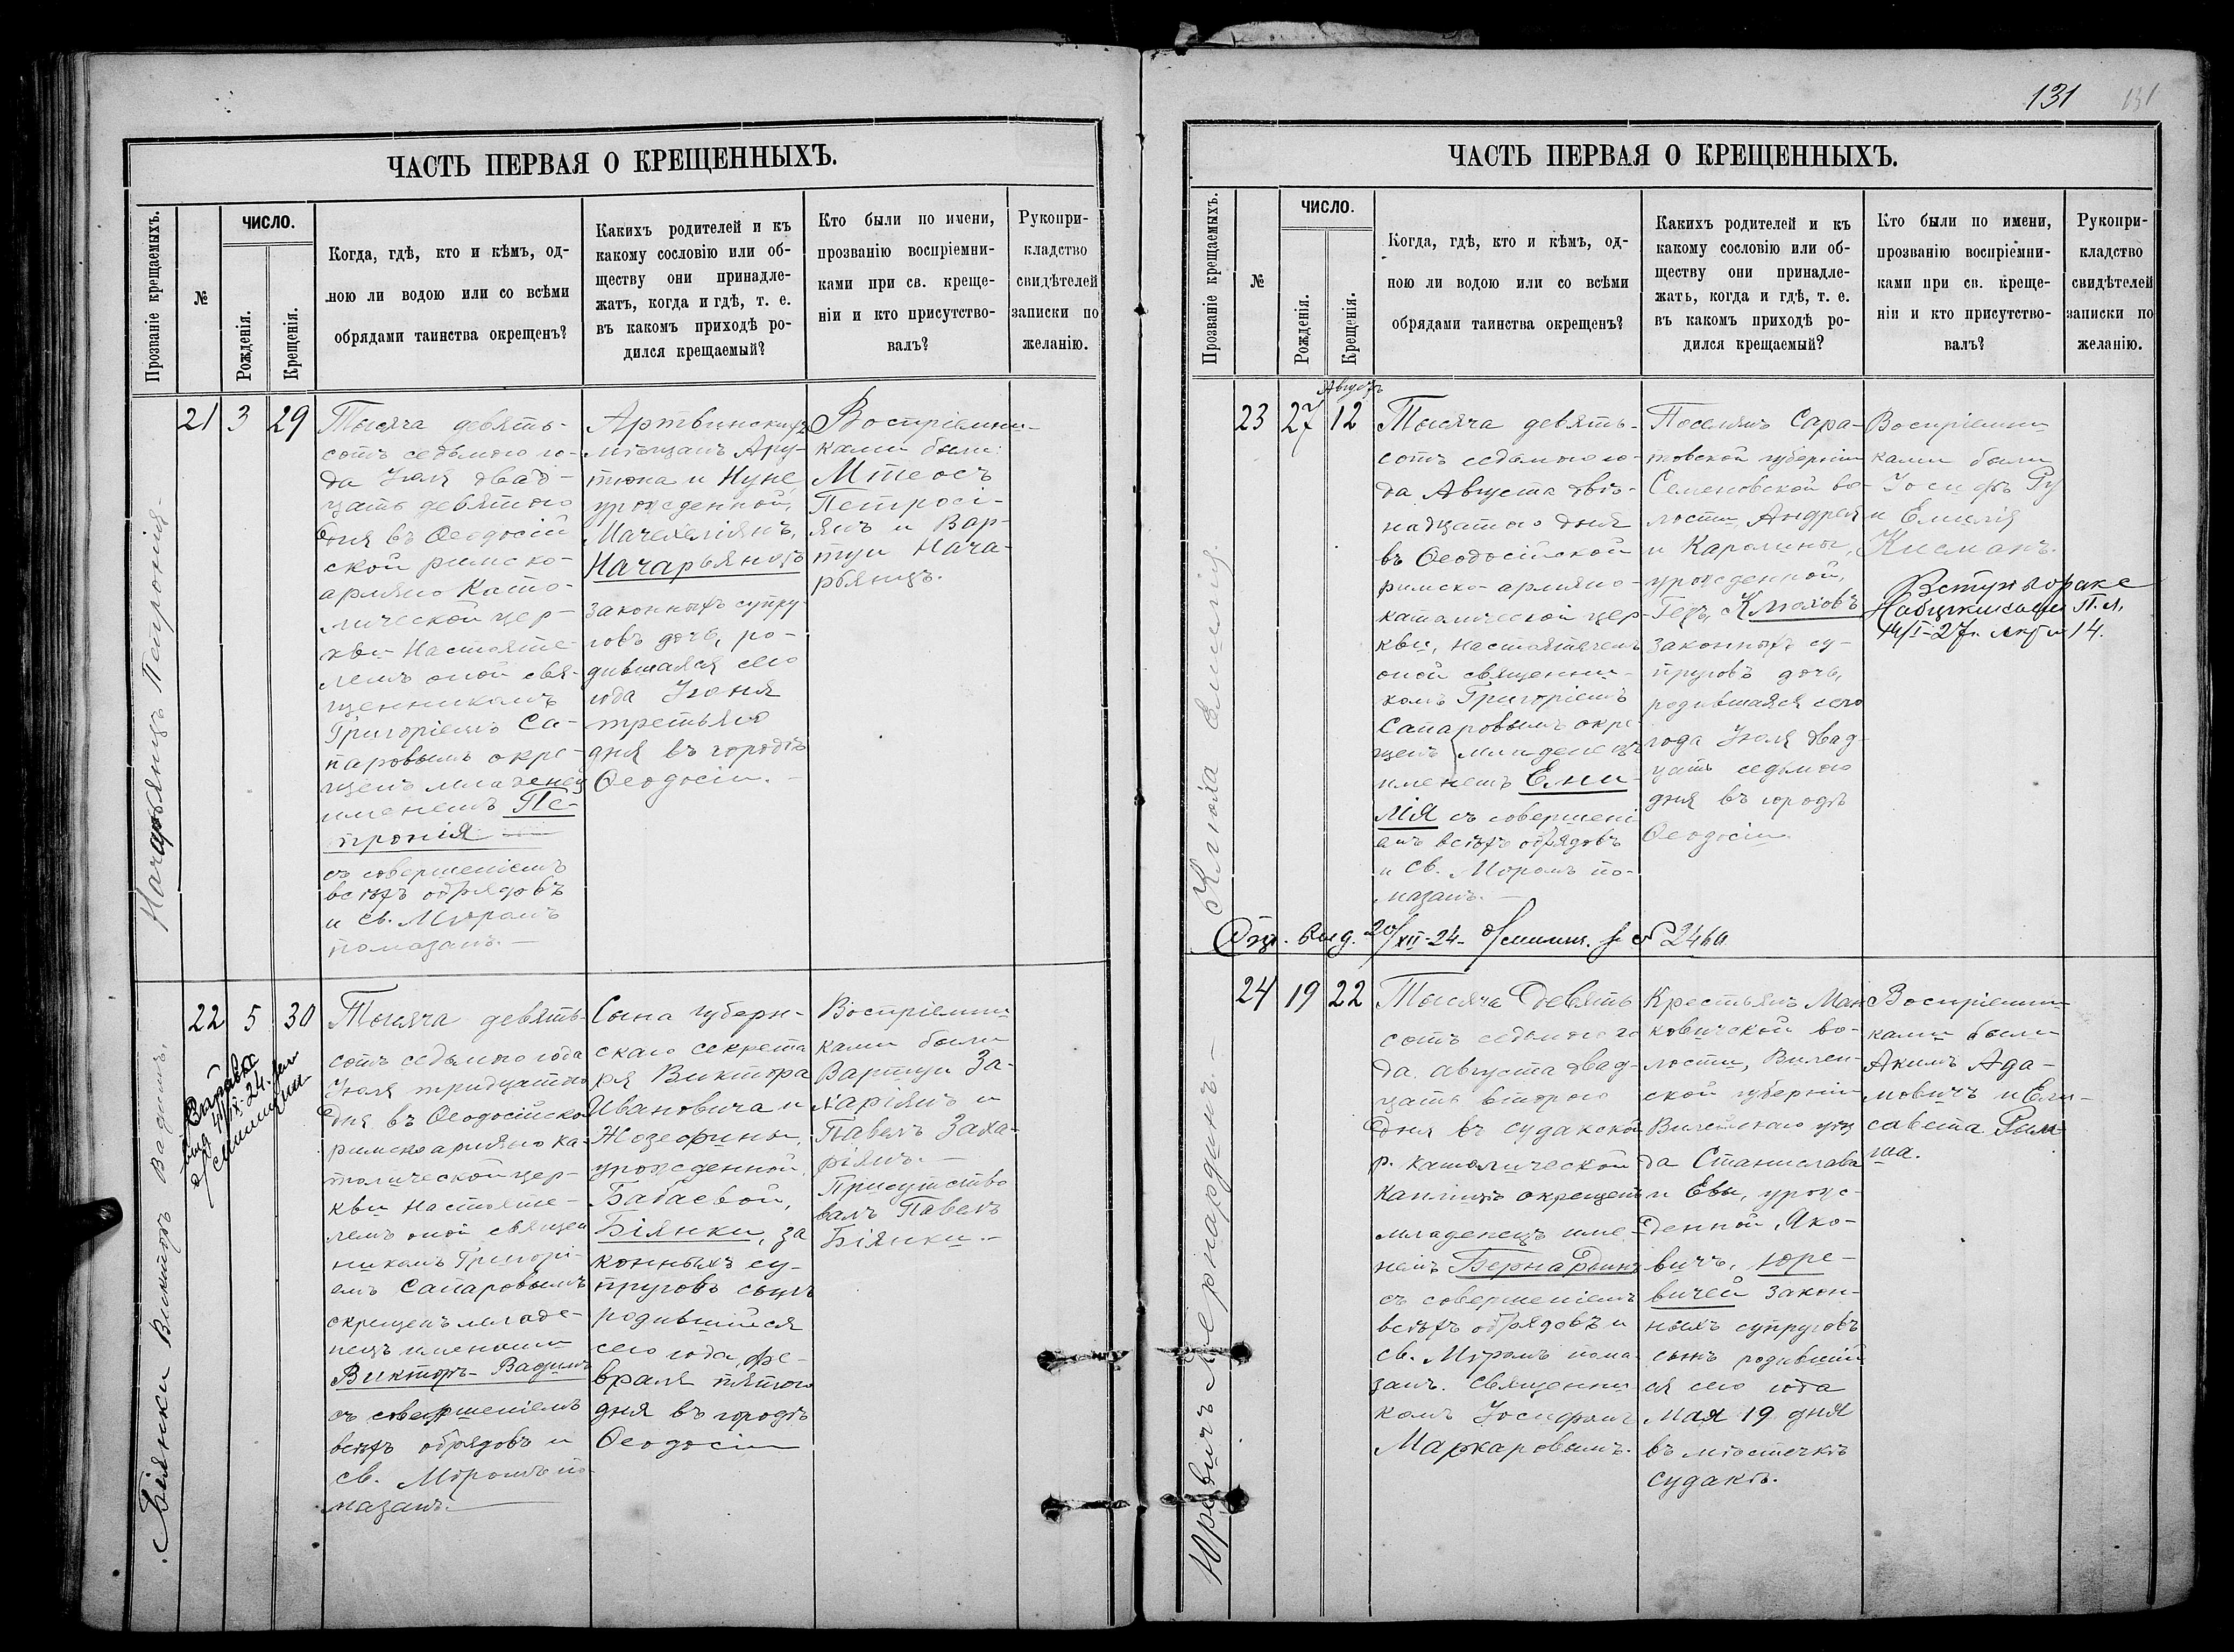 ЧАСТЬ ПЕРВАЯ О КРЕЩЕННЫХЪ.
Прозваніе крещаемыхъ.
№
ЧИСЛО.
Рожденія.
Крещенія.
Когда, гдѣ, кто и кѣмъ, од-
ною ли водою или со всѣми
обрядами таинства окрещенъ?
Какихъ родителей и къ
какому сословію или об-
ществу они принадле-
жатъ, когда и гдѣ, т. е.
въ какомъ приходѣ ро-
дился крещаемый?
Кто были по имени,
прозванію воспріемни-
ками при св. креще-
ніи и кто присутство-
валъ?
Рукопри-
кладство
свидѣтелей
записки по
желанію.
Начарьянцъ Петронія
21
3
29
Тысяча девять-
сотъ седьмого го-
да Іюля двад-
цать девятого
дня въ Ѳеодосій
ской римско-
армяно Като-
лической цер-
кви Настояте-
лемъ оной свя-
щенникомъ
Григоріемъ Са-
паровымъ окре-
щенъ младенец
именемъ Пе-
тронія
съ совершеніемъ
всѣхъ обрядовъ
и св. Мѵромъ
помазанъ.
Артвинскихъ
мѣщанъ Ару-
тюна и Нуне,
урожденной,
Мачехеліянъ,
Начарьянцъ
законныхъ супру
говъ дочь, ро-
дившаяся сего
года Іюня
третьяго
дня въ городѣ
Ѳеодосіи.
Воспріемни-
ками были:
Мтеосъ
Петросі-
янъ и Вар-
туи Нача-
рьянцъ.
Біянки Викторъ Вадимъ.
22
5
30
Тысяча девять-
сотъ седьмого года
Іюля тридцатого
дня въ Ѳеодосійско
римскоармяно ка-
толической цер-
кви Настояте-
лемъ оной священ
никомъ Григорі-
емъ Сапаровымъ
окрещенъ младе-
нецъ именами
Викторъ-Вадимъ
съ совершеніемъ
всѣхъ обрядовъ и
св. Мѵромъ по-
мазанъ.
Сына губерн-
скаго секрета
ря Виктора
Ивановича и
Жозефины,
урожденной
Бабаевой,
Біянки, за
конныхъ су-
пруговъ сынъ
родившійся
сего года фе-
враля пятого
дня въ городѣ
Ѳеодосіи
Воспріемни
ками были
Вартуи За-
харіянъ и
Павелъ Заха-
ріянъ.
Присутство
валъ Павелъ
Біянки.
131
131
ЧАСТЬ ПЕРВАЯ О КРЕЩЕННЫХЪ.
Прозваніе крещаемыхъ.
№
ЧИСЛО.
Рожденія.
Крещенія.
Когда, гдѣ, кто и кѣмъ, од-
ною ли водою или со всѣми
обрядами таинства окрещенъ?
Какихъ родителей и къ
какому сословію или об-
ществу они принадле-
жатъ, когда и гдѣ, т. е.
въ какомъ приходѣ ро-
дился крещаемый?
Кто были по имени,
прозванію воспріемни-
ками при св. креще-
ніи и кто присутство-
валъ?
Рукопри-
кладство
свидѣтелей
записки по
желанію.
Клюха Емилія.
23
27
Августъ
12
Тысяча девять-
сотъ седьмого го-
да Августа двѣ-
надцатого дня
въ Ѳеодосійской
римско-армяно-
католической цер
кви, настоятелемъ
оной священни-
комъ Григоріемъ
Сапаровымъ окре
щенъ младенецъ
именемъ Еми
лія съ совершені
емъ всѣхъ обрядовъ
и Св. Мѵромъ по-
мазанъ.
Поселянъ Сара-
товской губерніи
Семеновской во-
лости Андрея
и Каролины,
урожденной,
Гец, Клюховъ
законныхъ су-
пруговъ дочь,
родившаяся сего
года Іюля двад-
цать седьмого
дня въ городѣ
Ѳеодосіи
Воспріемни
ками были
Іосифъ Ру
и Емилія
Кисманъ.
14/I-27г. 14.
20/XII-24 2460
Юревичъ Бернардинъ.
24
19
22
Тысяча девять
сотъ седьмого го
да августа двад-
цать второго
дня въ судакской
р. католической
каплицѣ окрещенъ
младенецъ име-
немъ Бернардинъ
съ совершеніемъ
всѣхъ обрядовъ и
св. Мѵромъ пома
занъ. Священни
комъ Іосифомъ
Маркаровымъ.
Крестьянъ Мань
ковичской во-
лости, Вилен-
ской губерніи
Вилейскаго уѣз
да Станислава
и Евы, урож-
денной Яко-
вичъ, Юре-
вичей закон-
ныхъ супруговъ
сынъ родившій
ся сего года
Мая 19 дня
въ мѣстечкѣ
Судакѣ.
Воспріемни-
ками были
Акимъ Ада-
мовичъ и Ели-
савета